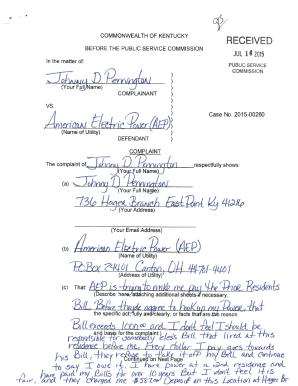 COMMONWEALTH OF KENTUCKY
RECEIVED
BEFORE THE PUBLIC SERVICE COMMISSION
JUL 16 2015
In the matter of:
PUBLIC SERVICE
COMMISSION
Johnny D Pennington
(Your Full Name)
COMPLAINANT
VS.
Case No. 2015-00260
American Electric Power (AEP)
(Name of Utility)
DEFENDANT
COMPLAINT
The complaint of Johnny D Pennington respectfully shows:
(Your Full Name)
(a) Johnny D Pennington
(Your Full Name)
736 Hager Branch East Point Ky 41216
(Your Address)
(Your Email Address)
(b) American Electric Power (AEP)
(Name of Utility)
PO Box 24401 Canton, OH 44701-4401
(Address of Utility)
(c) That: AEP is trying to make me pay the Prior Residents
(Describe here, attaching additional sheets if necessary,
Bill. Before they'de agree to hook up my Power, that
the specific act, fully and clearly, or facts that are the reason
Bill exceeds and I don't feel I should be
and basis for the complaint.)
responsible for somebody elses Bill that lived at this
residence before me. Every dollar I pay goes towards
his Bill, they refuse to take it off my Bill and continue
to say I owe it. I have power at a 2nd residence and
Continued on Next Page
have paid my Bills for over 10 years But I don't feel this is
fair, and they charged me Deposit on this Location at Hager Br